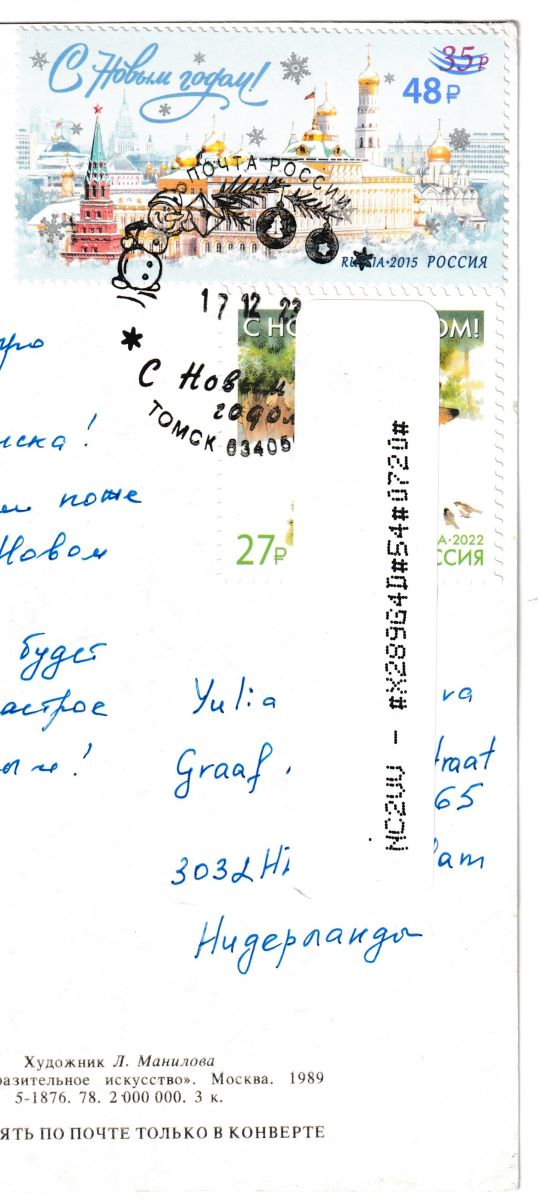 С Новым годом!
35₽
48₽
ПОЧТА РОССИИ
RUSSIA·2015 РОССИЯ
17 12 22
С НО ОМ!
С Новым
годом
ТОМСК 63405
27₽
А·2022
ССИЯ
про
иска!
поже
Новом
будет
астрое
ы и!
Yulia va
Graaf traat
65
3032H dam
Нидерланды
NC2UU - #X289G4D#54#0720#
Художник Л. Манилова
разительное искусство». Москва. 1989
5-1876. 78. 2 000 000. 3 к.
ЯТЬ ПО ПОЧТЕ ТОЛЬКО В КОНВЕРТЕ